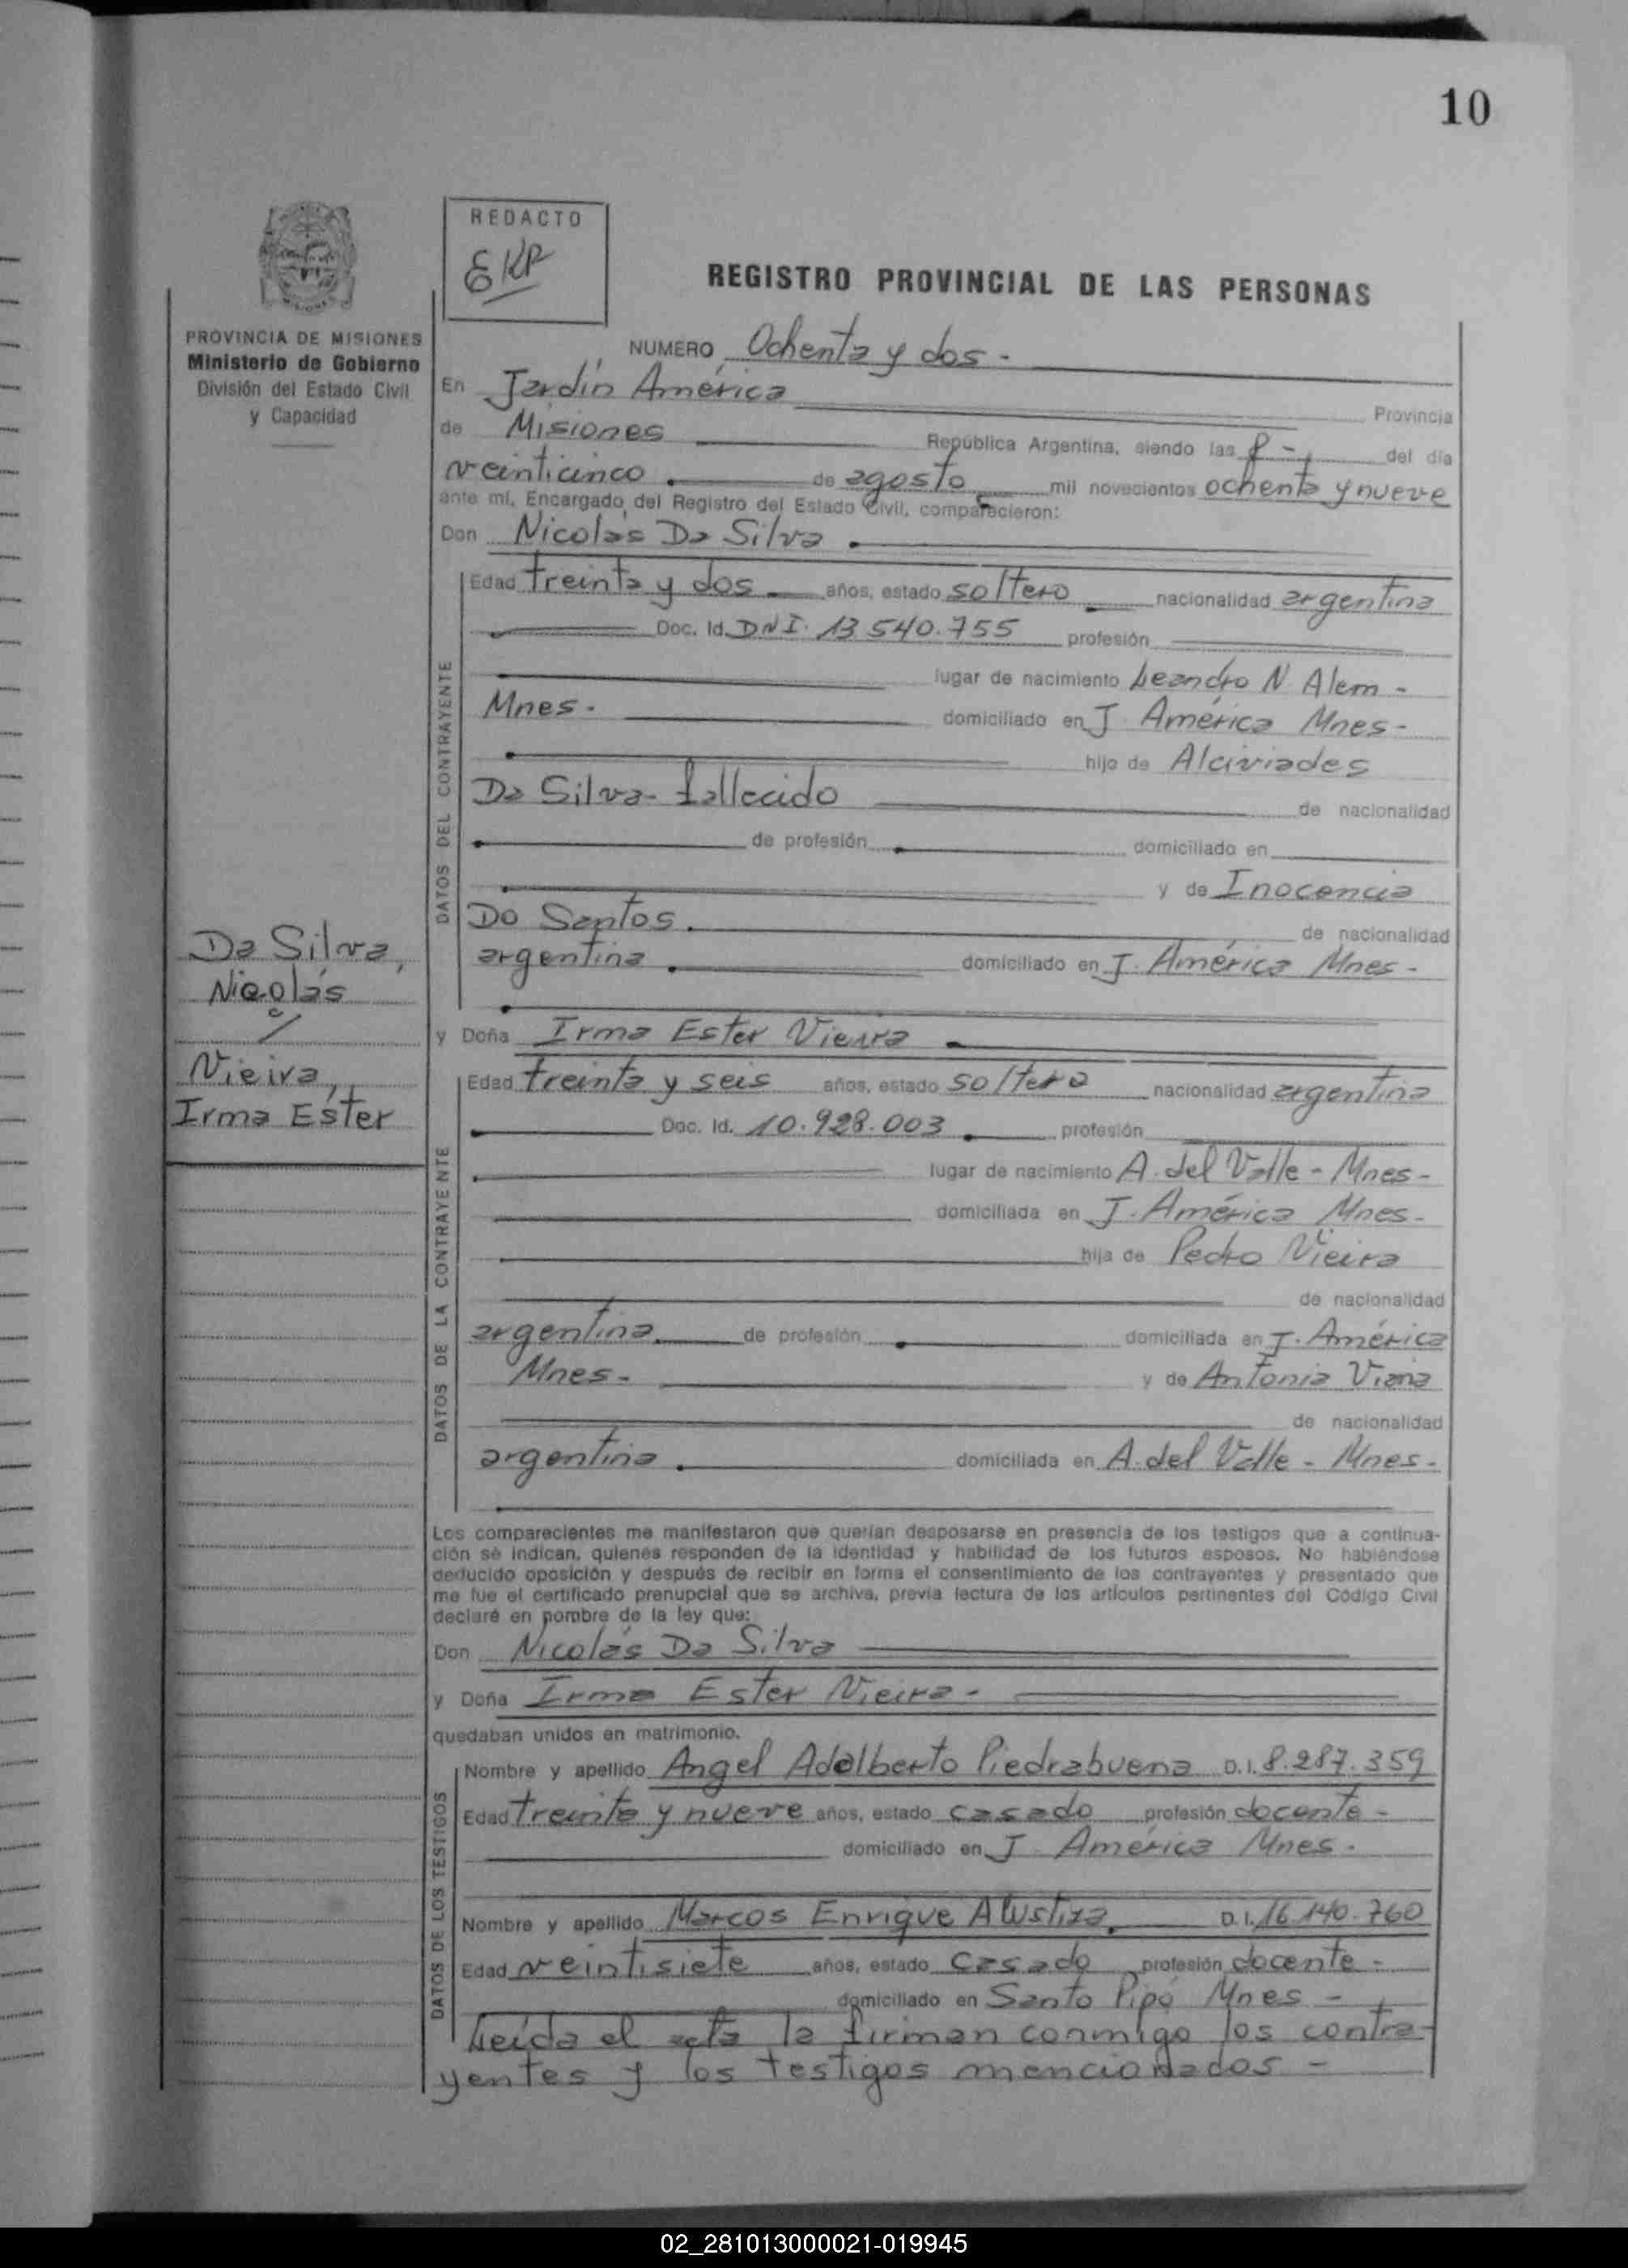 10
REDACTO
EKP
REGISTRO PROVINCIAL DE LAS PERSONAS
PROVINCIA DE MISIONES
Ministerio de Gobierno
División del Estado Civil
y Capacidad
NUMERO Ochenta y dos.-
En Jardín América Provincia
de Misiones República Argentina, siendo las 8 - del día
veinticinco de agosto mil novecientos ochenta y nueve
ante mí, Encargado del Registro del Estado Civil, comparecieron:
Don Nicolás Da Silva
DATOS DEL CONTRAYENTE
Edad treinta y dos años, estado soltero nacionalidad argentina
Doc. Id. DNI. 13.540.755 profesión
lugar de nacimiento Leandro N. Alem -
Mnes. domiciliado en J. América Mnes-
hijo de Alciviades
Da Silva- fallecido de nacionalidad
de profesión domiciliado en
y de Inocencia
Do Santos. de nacionalidad
argentina domiciliado en J. América Mnes-
Da Silva,
Nicolás
c/
Vieira,
Irma Ester
y Doña Irma Ester Vieira
DATOS DE LA CONTRAYENTE
Edad treinta y seis años, estado soltera nacionalidad argentina
Doc. Id. 10.928.003 profesión
lugar de nacimiento A. del Valle - Mnes-
domiciliada en J. América Mnes-
hija de Pedro Vieira
de nacionalidad
argentina de profesión domiciliada en J. América
Mnes- y de Antonia Viana
de nacionalidad
argentina. domiciliada en A. del Valle - Mnes-
Los comparecientes me manifestaron que querían desposarse en presencia de los testigos que a continua-
ción se indican, quienes responden de la identidad y habilidad de los futuros esposos. No habiéndose
deducido oposición y después de recibir en forma el consentimiento de los contrayentes y presentado que
me fue el certificado prenupcial que se archiva, previa lectura de los artículos pertinentes del Código Civil
declaré en nombre de la ley que:
Don Nicolás Da Silva
y Doña Irma Ester Vieira-
quedaban unidos en matrimonio.
DATOS DE LOS TESTIGOS
Nombre y apellido Angel Adalberto Piedrabuena D.I. 8.287.359
Edad treinta y nueve años, estado casado profesión docente-
domiciliado en J. América Mnes-
Nombre y apellido Marcos Enrique Alustiza D.I. 16.140.760
Edad veintisiete años, estado casado profesión docente-
domiciliado en Santo Pipó Mnes-
Leída el acta la firman conmigo los contra-
yentes y los testigos mencionados-
02_281013000021-019945